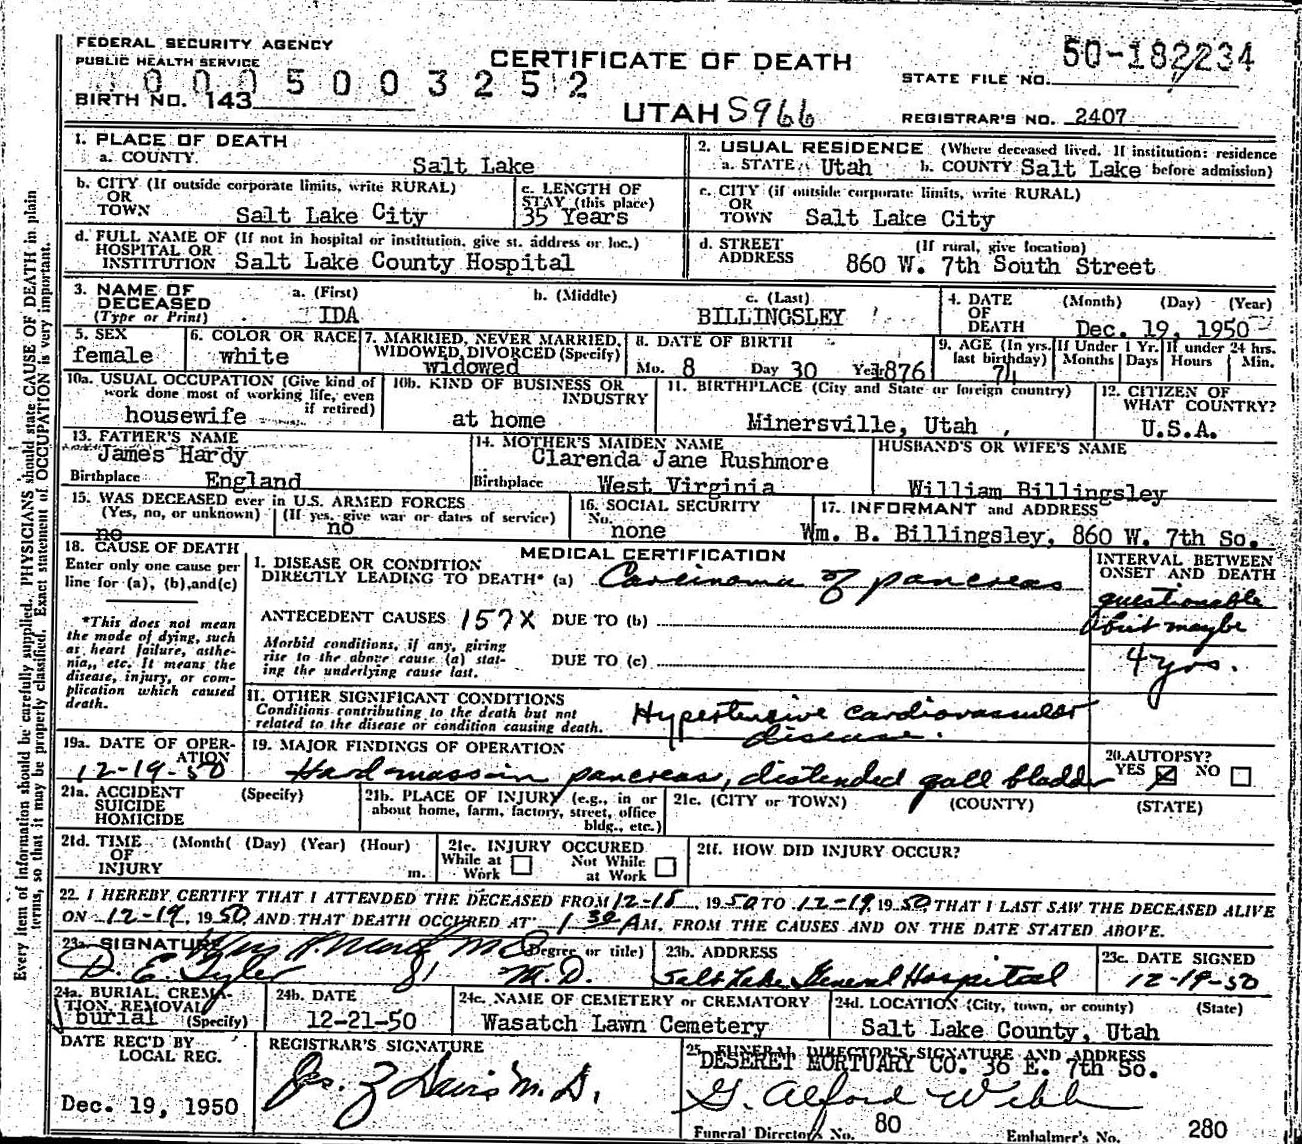 FEDERAL SECURITY AGENCY
PUBLIC HEALTH SERVICE
0005003252
BIRTH NO. 143
CERTIFICATE OF DEATH
UTAH S966
50-182234
STATE FILE NO.
REGISTRAR'S NO. 2407
Every item of information should be carefully supplied. PHYSICIANS should state CAUSE OF DEATH in plain
terms, so that it may be properly classified. Exact statement of OCCUPATION is very important.
1. PLACE OF DEATH
a. COUNTY
Salt Lake
2. USUAL RESIDENCE (Where deceased lived. If institution: residence
a. STATE Utah b. COUNTY Salt Lake before admission)
b. CITY (If outside corporate limits, write RURAL)
OR
TOWN Salt Lake City
c. LENGTH OF
STAY (this place)
35 Years
c. CITY (if outside corporate limits, write RURAL)
OR
TOWN Salt Lake City
d. FULL NAME OF (If not in hospital or institution, give st. address or loc.)
HOSPITAL OR
INSTITUTION Salt Lake County Hospital
d. STREET (If rural, give location)
ADDRESS 860 W. 7th South Street
3. NAME OF
DECEASED
(Type or Print)
a. (First)
IDA
b. (Middle)
c. (Last)
BILLINGSLEY
4. DATE (Month) (Day) (Year)
OF
DEATH Dec. 19, 1950
5. SEX
female
6. COLOR OR RACE
white
7. MARRIED, NEVER MARRIED,
WIDOWED, DIVORCED (Specify)
widowed
8. DATE OF BIRTH
Mo. 8 Day 30 Year 1876
9. AGE (In yrs.
last birthday)
74
If Under 1 Yr.
Months Days
If under 24 hrs.
Hours Min.
10a. USUAL OCCUPATION (Give kind of
work done most of working life, even
if retired)
housewife
10b. KIND OF BUSINESS OR
INDUSTRY
at home
11. BIRTHPLACE (City and State or foreign country)
Minersville, Utah
12. CITIZEN OF
WHAT COUNTRY?
U.S.A.
13. FATHER'S NAME
James Hardy
Birthplace England
14. MOTHER'S MAIDEN NAME
Clarenda Jane Rushmore
Birthplace West Virginia
HUSBAND'S OR WIFE'S NAME
William Billingsley
15. WAS DECEASED ever in U.S. ARMED FORCES
(Yes, no, or unknown) (If yes, give war or dates of service)
no no
16. SOCIAL SECURITY
No.
none
17. INFORMANT and ADDRESS
Wm. B. Billingsley, 860 W. 7th So.
18. CAUSE OF DEATH
Enter only one cause per
line for (a), (b), and (c)
*This does not mean
the mode of dying, such
as heart failure, asthe-
nia, etc. It means the
disease, injury, or com-
plication which caused
death.
MEDICAL CERTIFICATION
I. DISEASE OR CONDITION
DIRECTLY LEADING TO DEATH* (a) Carcinoma of pancreas
ANTECEDENT CAUSES 157X DUE TO (b)
Morbid conditions, if any, giving
rise to the above cause (a) stat-
ing the underlying cause last.
DUE TO (c)
II. OTHER SIGNIFICANT CONDITIONS
Conditions contributing to the death but not
related to the disease or condition causing death.
Hypertensive cardiovascular
disease.
INTERVAL BETWEEN
ONSET AND DEATH
questionable
but maybe
4 yrs.
19a. DATE OF OPER-
ATION
12-19-50
19. MAJOR FINDINGS OF OPERATION
Hard mass in pancreas, distended gall bladder
20. AUTOPSY?
YES NO
21a. ACCIDENT (Specify)
SUICIDE
HOMICIDE
21b. PLACE OF INJURY (e.g., in or
about home, farm, factory, street, office
bldg., etc.)
21c. (CITY or TOWN) (COUNTY) (STATE)
21d. TIME (Month( (Day) (Year) (Hour)
OF
INJURY m.
21e. INJURY OCCURED
While at Not While
Work at Work
21f. HOW DID INJURY OCCUR?
22. I HEREBY CERTIFY THAT I ATTENDED THE DECEASED FROM 12-15, 1950 TO 12-19, 1950, THAT I LAST SAW THE DECEASED ALIVE
ON 12-19, 1950, AND THAT DEATH OCCURED AT 1 30 AM. FROM THE CAUSES AND ON THE DATE STATED ABOVE.
23a. SIGNATURE (Degree or title)
D. E. Tyler M.D.
23b. ADDRESS
Salt Lake General Hospital
23c. DATE SIGNED
12-19-50
24a. BURIAL, CREMA-
TION, REMOVAL
burial (Specify)
24b. DATE
12-21-50
24c. NAME OF CEMETERY or CREMATORY
Wasatch Lawn Cemetery
24d. LOCATION (City, town, or county) (State)
Salt Lake County, Utah
DATE REC'D BY
LOCAL REG.
Dec. 19, 1950
REGISTRAR'S SIGNATURE
Jas. Z Davis M.D.
25. FUNERAL DIRECTOR'S SIGNATURE AND ADDRESS
DESERET MORTUARY CO. 36 E. 7th So.
G. Alford Webb
Funeral Director's No. 80 Embalmer's No. 280